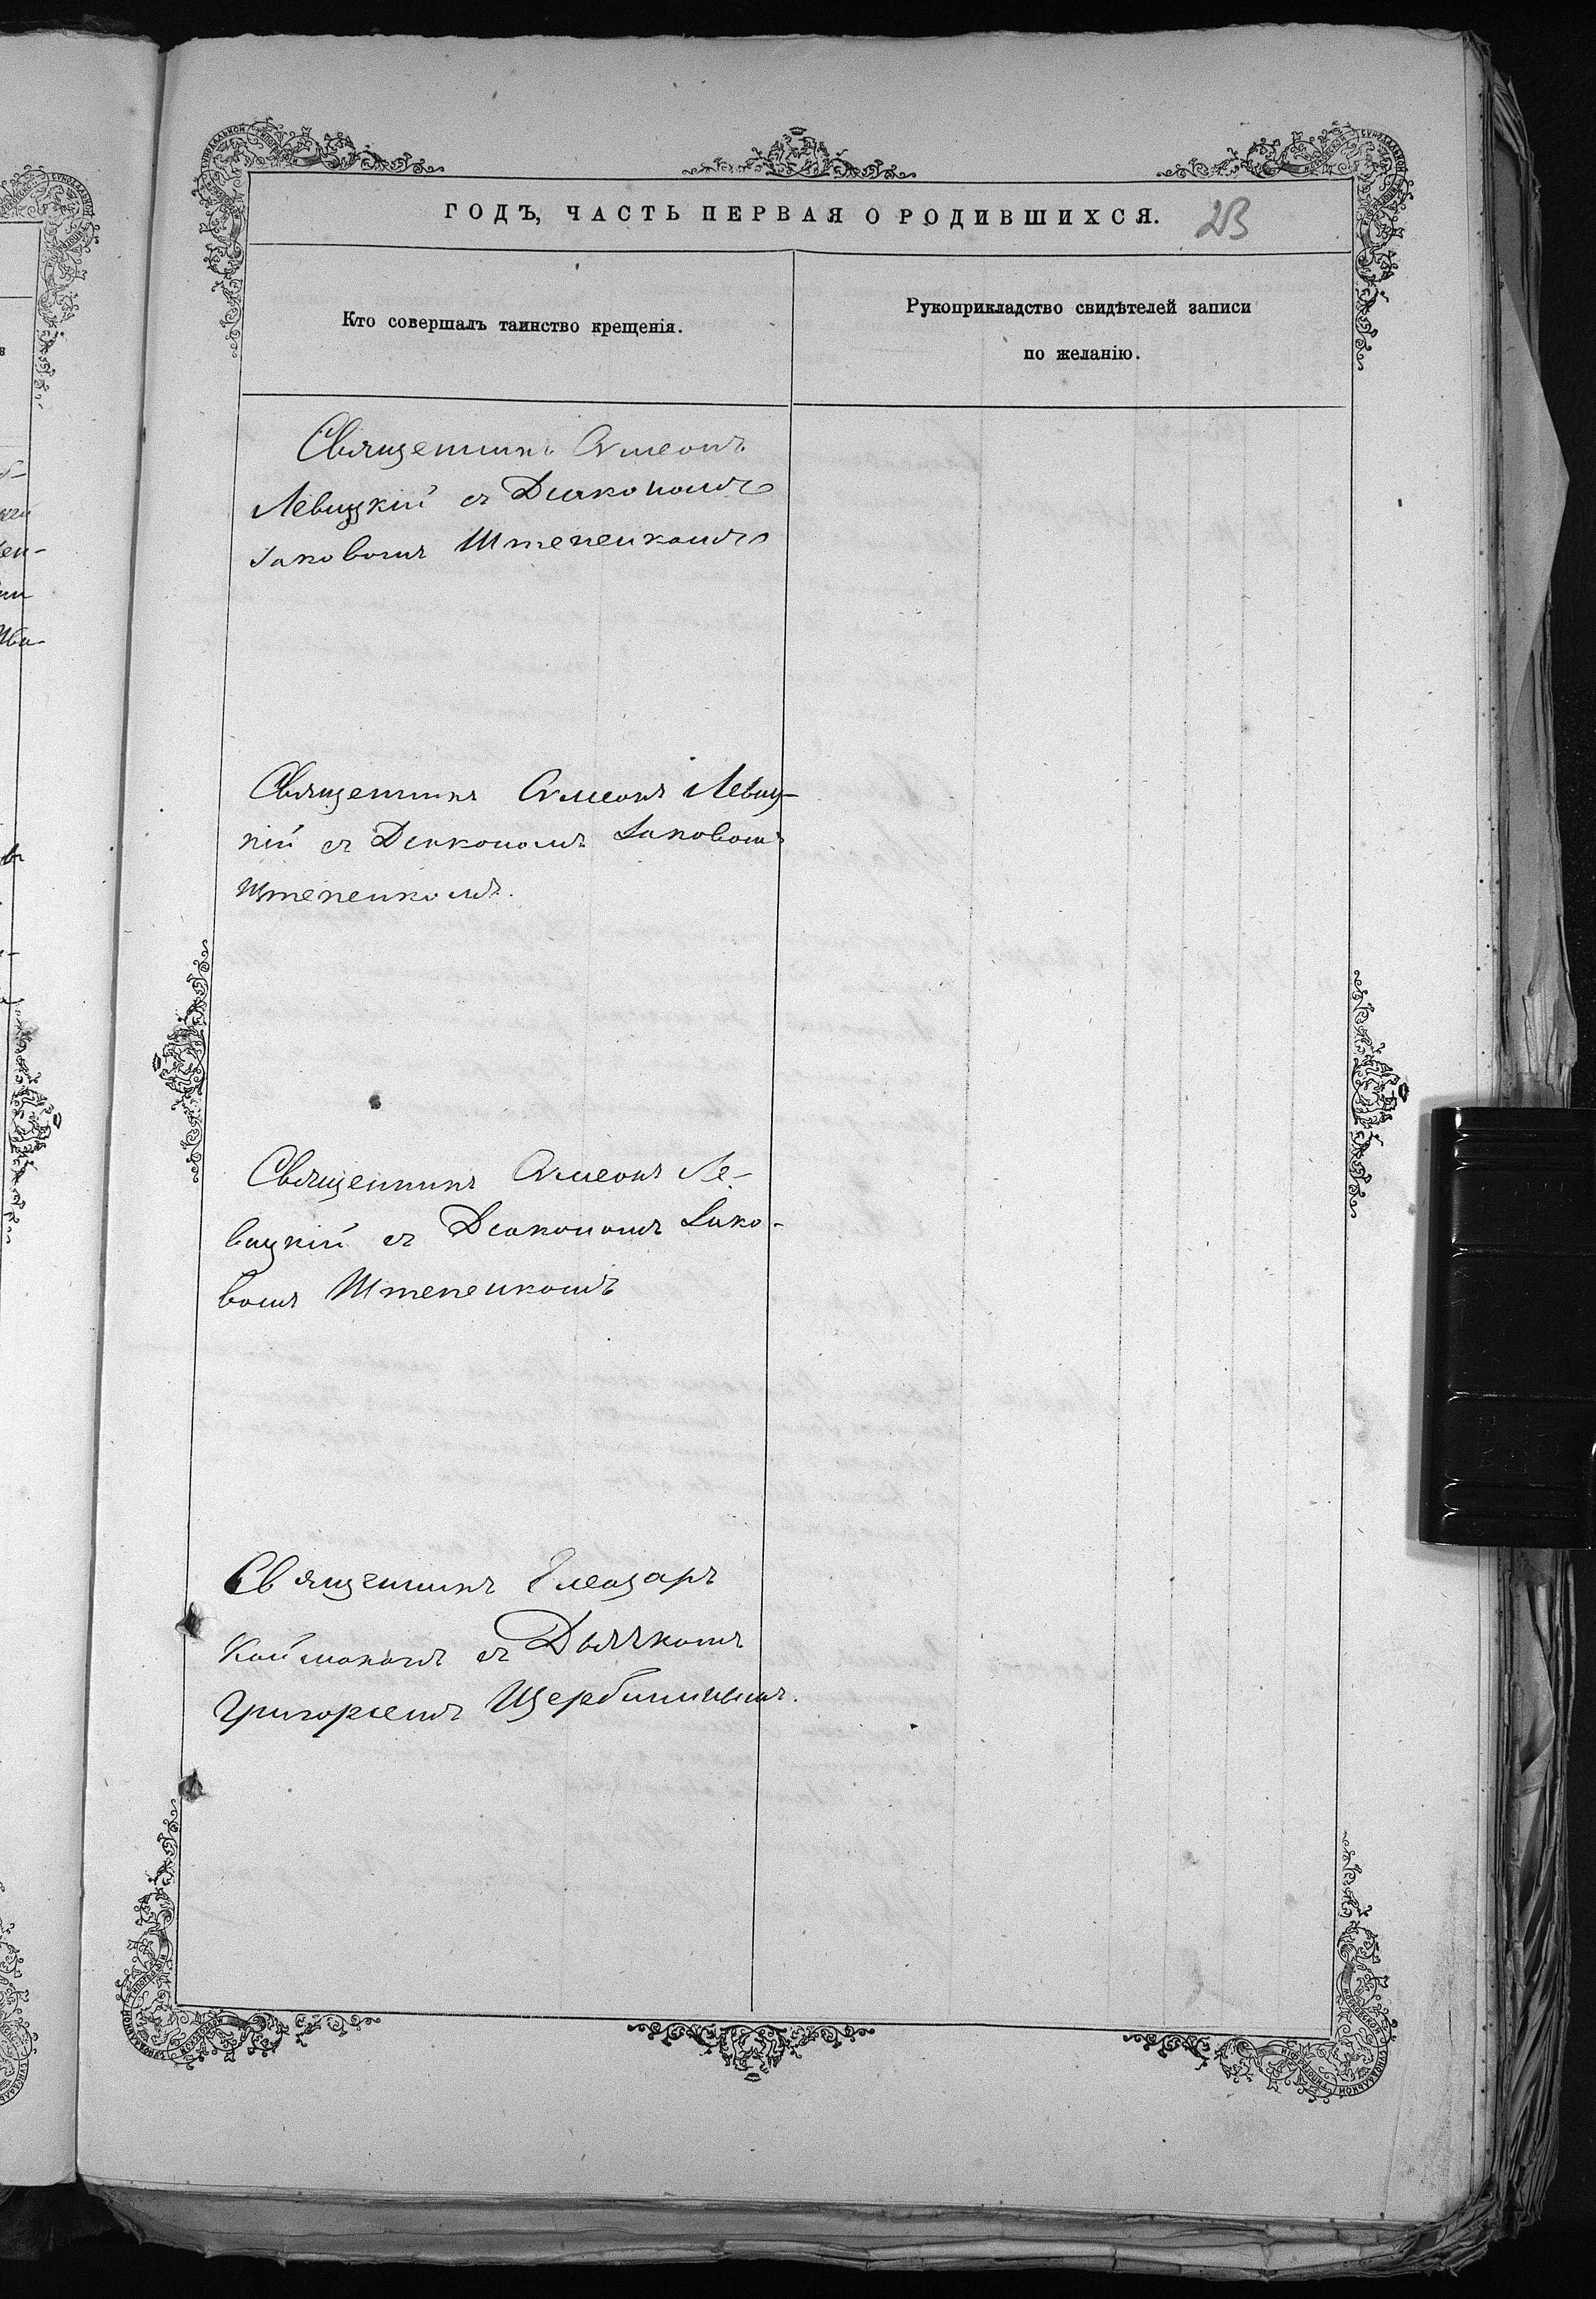 ГОДЪ, ЧАСТЬ ПЕРВАЯ О РОДИВШИХСЯ. 23
Кто совершалъ таинство крещенія.
Рукоприкладство свидѣтелей записи
по желанію.
Священникъ Сѵмеонъ
Левицкій съ Діакономъ
Іаковомъ Штепенкомъ
Священникъ Сѵмеонъ Левиц-
кій съ Діакономъ Іаковомъ
Штепенкомъ.
Священникъ Сѵмеонъ Ле-
вицкій съ Діакономъ Іако-
вомъ Штепенкомъ
Священникъ Елеазаръ
съ Дьячкомъ
Григоріемъ Щербининымъ.